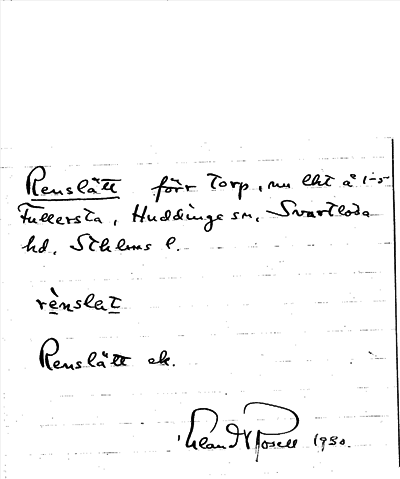 Renslätt förr torp, nu lht å 1-5
Fullersta, Huddinge sn, Svartlösa
hd, Sthlms l.
rènslet
Renslätt ek.
Rosell 1930.